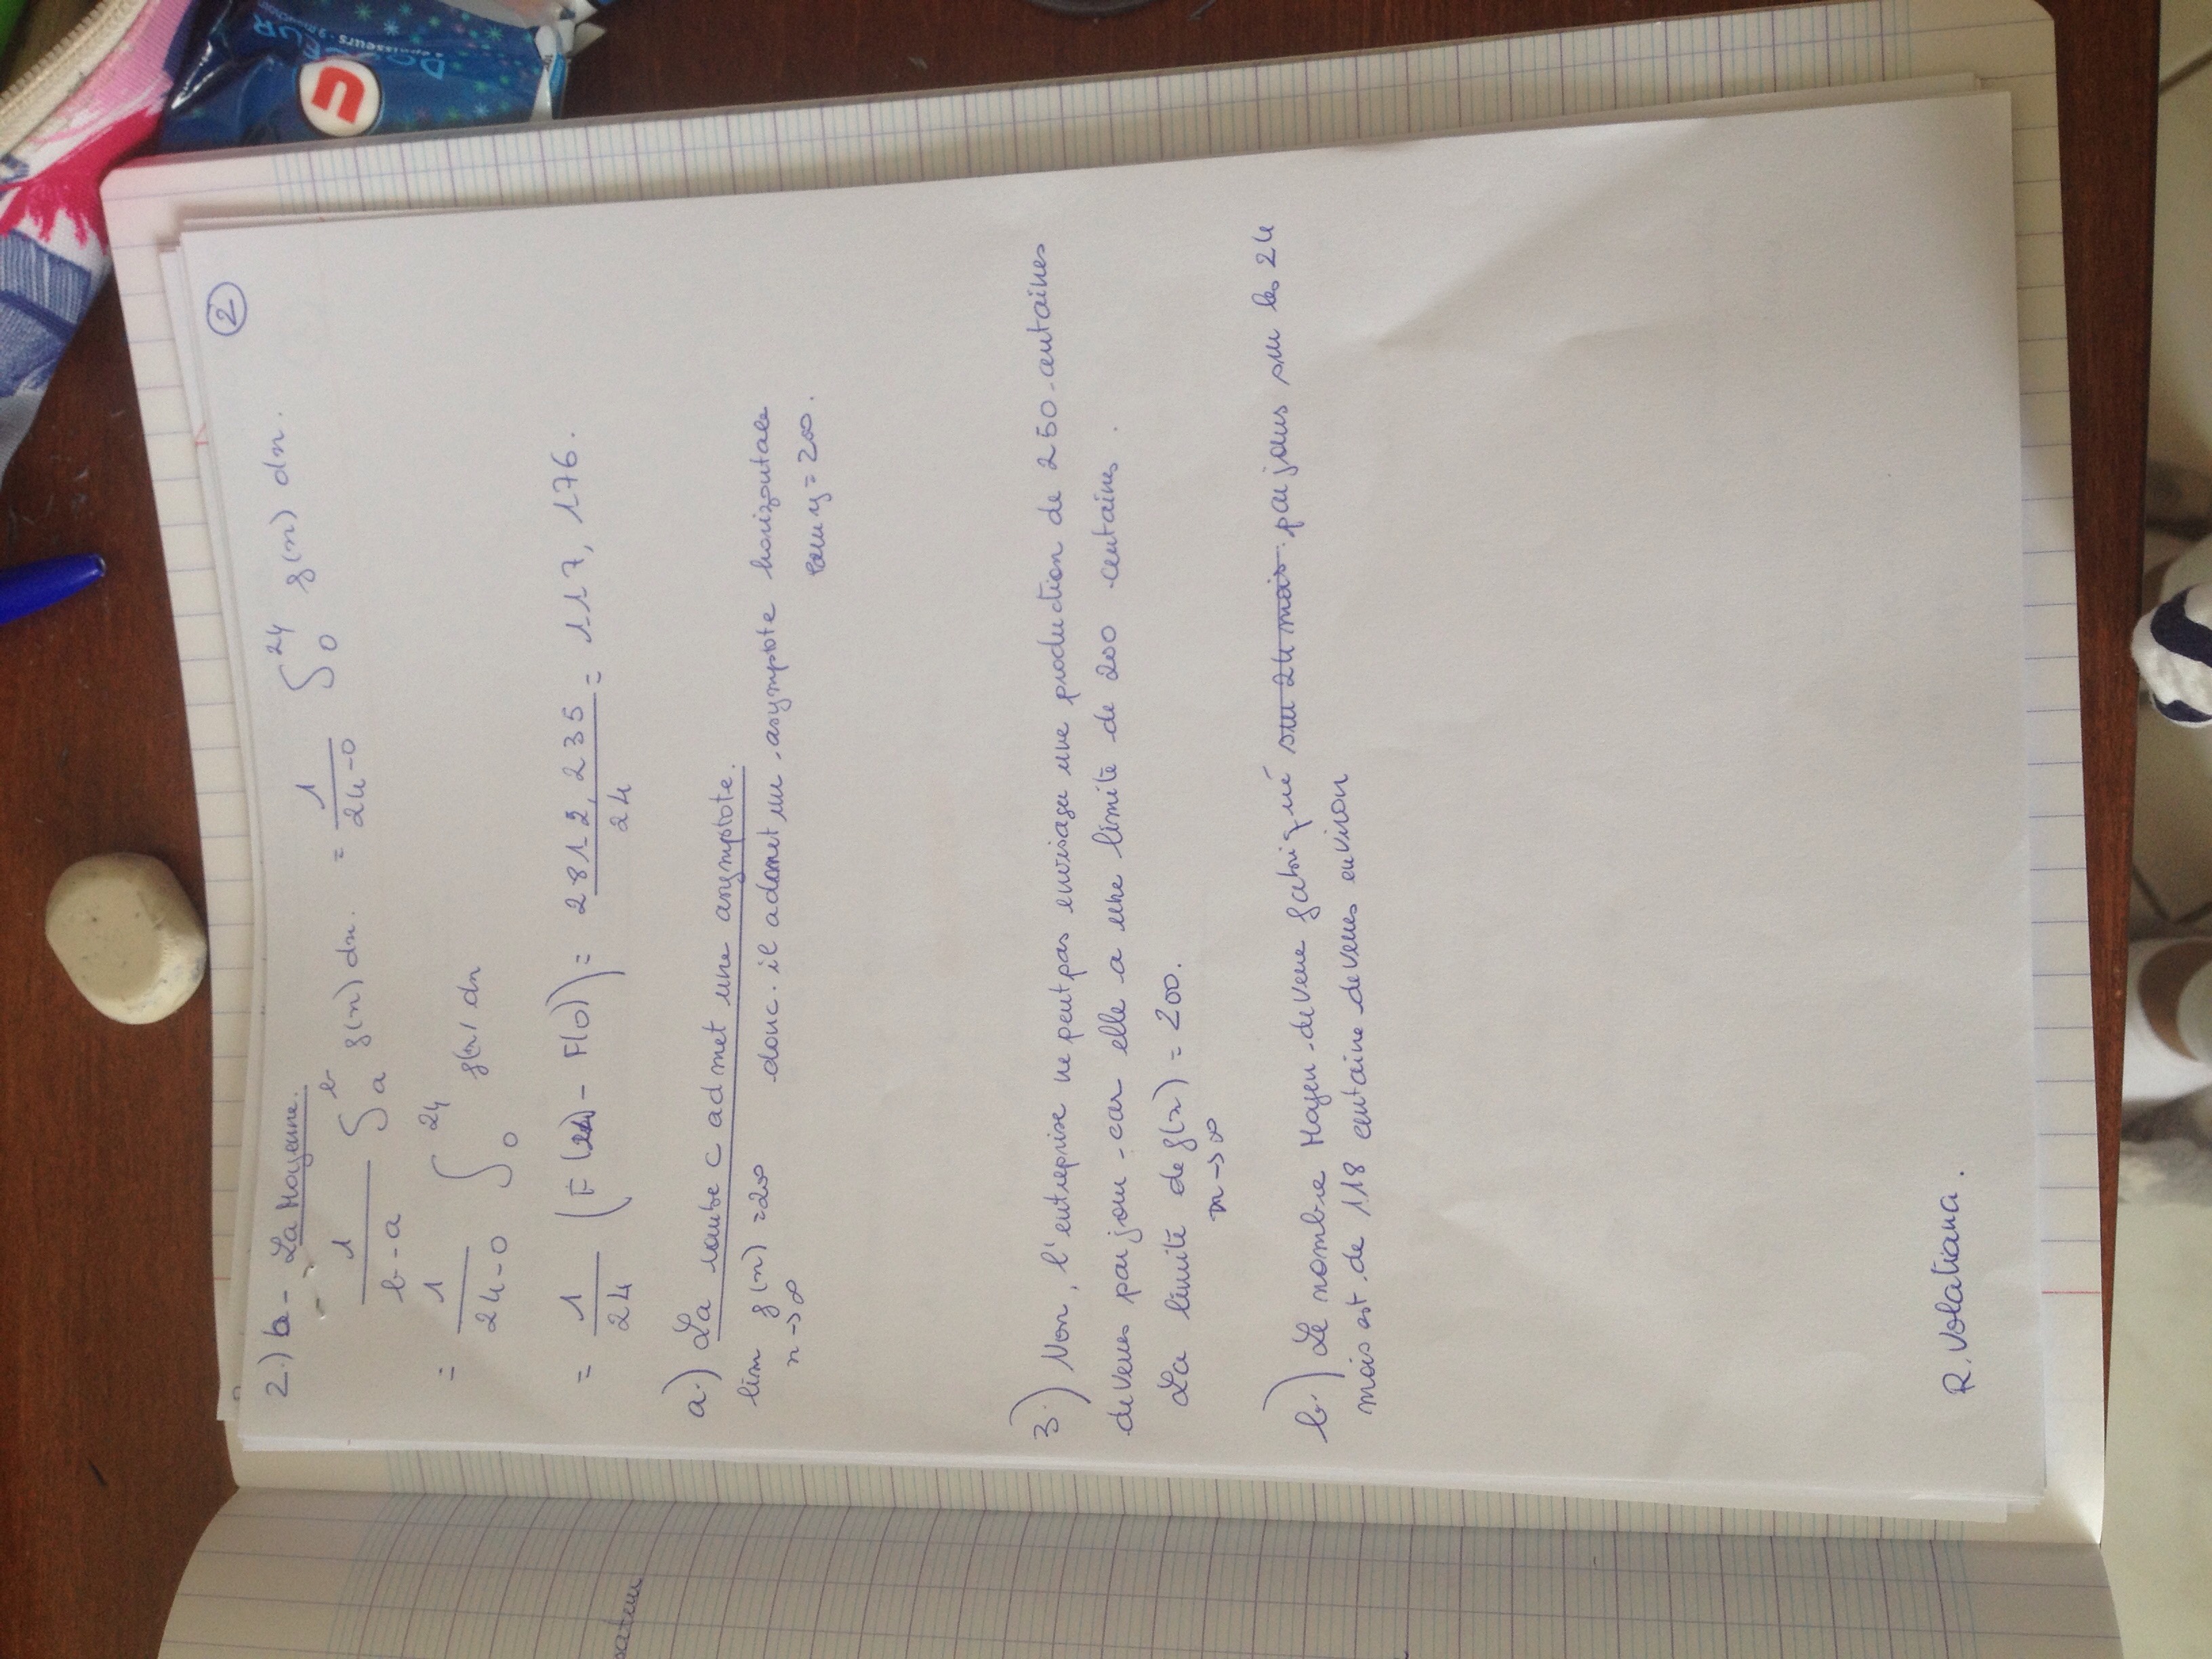 ②
2.) b - La Moyenne.
1/(b-a) ∫ₐᵇ f(x) dx. = 1/(24-0) ∫₀²⁴ f(x) dx.
= 1/(24-0) ∫₀²⁴ f(x) dx
= 1/24 (F(24) - F(0)) = 2812,235/24 = 117,176.
a.) La courbe C admet une asymptote.
lim f(x) = 200 donc. il admet un asymptote horizontale
x → ∞
y = 200.
3.) Non, l'entreprise ne peut pas envisager une production de 250 centaines
de verres par jour car elle a une limite de 200 centaines.
La limite de f(x) = 200.
x → ∞
b.) Le nombre Moyen de verre fabriqué sur 24 mois par jours sur les 24
mois est de 118 centaine de verres environ
R. Volatiana.
U
DOSEUR